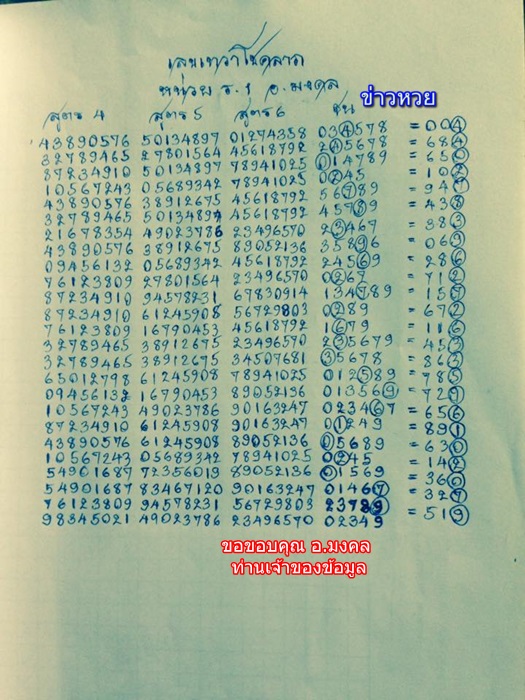 เลขเทวาโชคลาภ
หน่วย ร.1 อ.มงคล
ข่าวหวย
สูตร 4 สูตร 5 สูตร 6 ชน
43890576 50134897 01274358 034578 = 004
32789465 27801564 45618792 245678 = 684
87234910 50134897 78941025 014789 = 650
10567243 05689342 78941025 0245 = 102
43890576 38912675 45618792 56789 = 947
32789465 50134897 45618792 45789 = 438
21678354 49023786 23496570 23467 = 383
43890576 38912675 89052136 35896 = 069
09456132 05689342 45618792 24569 = 286
76123809 27801564 23496570 0267 = 712
87234910 94578231 67830914 134789 = 157
87234910 61245908 56729803 0289 = 672
76123809 16790453 45618792 1679 = 116
32789465 38912675 23496570 235679 = 453
32789465 38912675 34507681 35678 = 863
65012798 61245908 78941025 012589 = 785
09456132 16790453 89052136 013569 = 729
10567243 49023786 90163247 023467 = 656
87234910 61245908 90163247 01249 = 891
43890576 61245908 89052136 05689 = 630
10567243 05689342 78941025 0245 = 142
54901687 72356019 89052136 01569 = 360
54901687 83467120 90163247 01467 = 327
76123809 94578231 56729803 23789 = 519
98345021 49023786 23496570 02349
ขอขอบคุณ อ.มงคล
ท่านเจ้าของข้อมูล